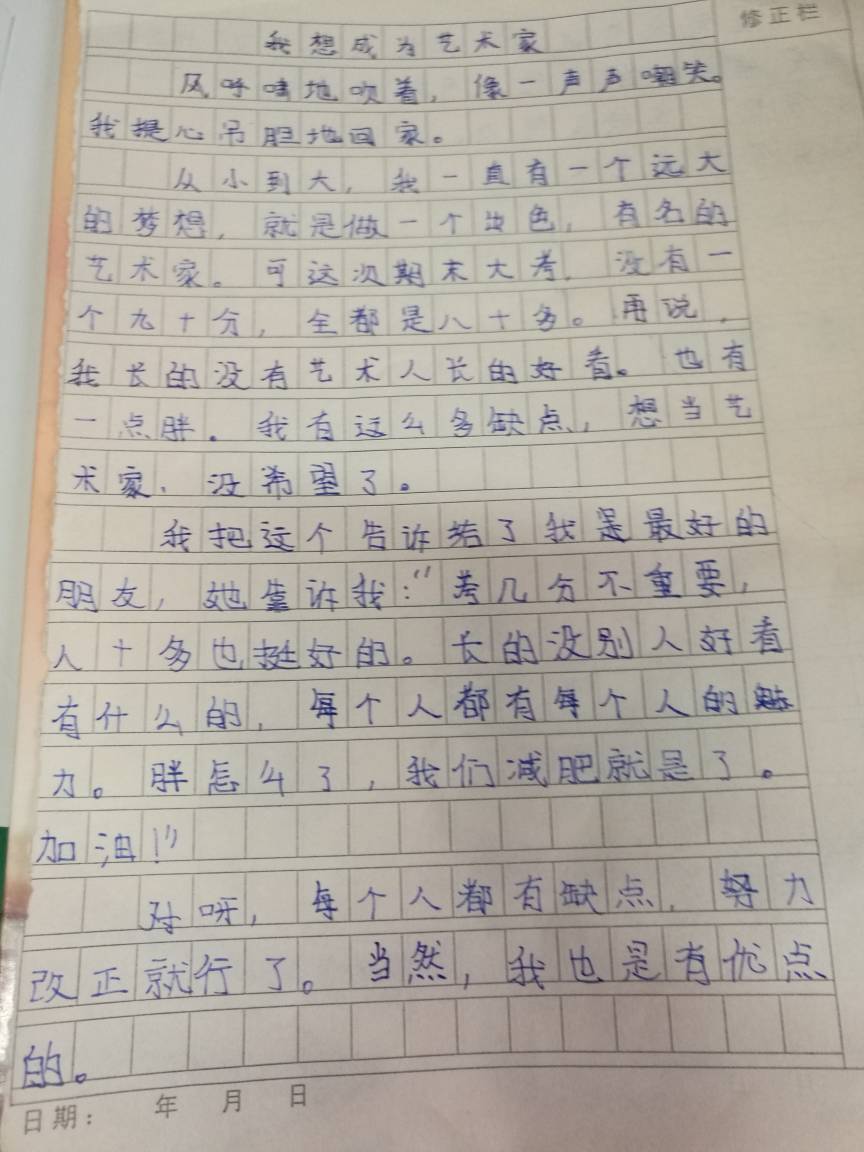 修正栏
我想成为艺术家
风呼啸地吹着，像一声声嘲笑。
我提心吊胆地回家。
从小到大，我一直有一个远大
的梦想，就是做一个出色，有名的
艺术家。可这次期末大考，没有一
个九十分，全都是八十多。再说，
我长的没有艺术人长的好看。也有
一点胖。我有这么多缺点，想当艺
术家，没希望了。
我把这个告诉给了我是最好的
朋友，她靠诉我：“考几分不重要，
八十多也挺好的。长的没别人好看
有什么的，每个人都有每个人的魅
力。胖怎么了，我们减肥就是了。
加油！”
对呀，每个人都有缺点，努力
改正就行了。当然，我也是有优点
的。
日期： 年 月 日